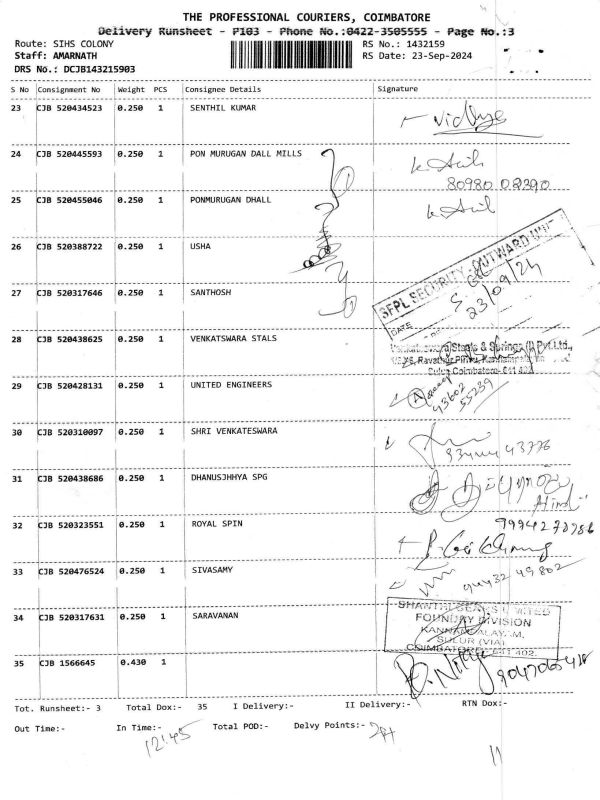 THE PROFESSIONAL COURIERS, COIMBATORE
Delivery Runsheet - P103 - Phone No.:0422-3505555 - Page No.:3
Route: SIHS COLONY RS No.: 1432159
Staff: AMARNATH RS Date: 23-Sep-2024
DRS No.: DCJB143215903
S No Consignment No Weight PCS Consignee Details Signature
23 CJB 520434523 0.250 1 SENTHIL KUMAR
24 CJB 520445593 0.250 1 PON MURUGAN DALL MILLS
80980 02390
25 CJB 520455046 0.250 1 PONMURUGAN DHALL
26 CJB 520388722 0.250 1 USHA
SFPL SECURITY - OUTWARD UNIT
DATE 23/09/24
27 CJB 520317646 0.250 1 SANTHOSH
28 CJB 520438625 0.250 1 VENKATSWARA STALS
Staple & Springs (I) Pvt.Ltd.,
Sulur Coimbatore- 641 402
29 CJB 520428131 0.250 1 UNITED ENGINEERS
43602
55239
30 CJB 520310097 0.250 1 SHRI VENKATESWARA
43776
31 CJB 520438686 0.250 1 DHANUSJHHYA SPG
32 CJB 520323551 0.250 1 ROYAL SPIN
33 CJB 520476524 0.250 1 SIVASAMY
49802
34 CJB 520317631 0.250 1 SARAVANAN
FOUNDRY DIVISION
SULUR (VIA)
COIMBATORE - 641 402.
35 CJB 1566645 0.430 1
Tot. Runsheet:- 3 Total Dox:- 35 I Delivery:- II Delivery:- RTN Dox:-
Out Time:- In Time:- Total POD:- Delvy Points:-
12:45